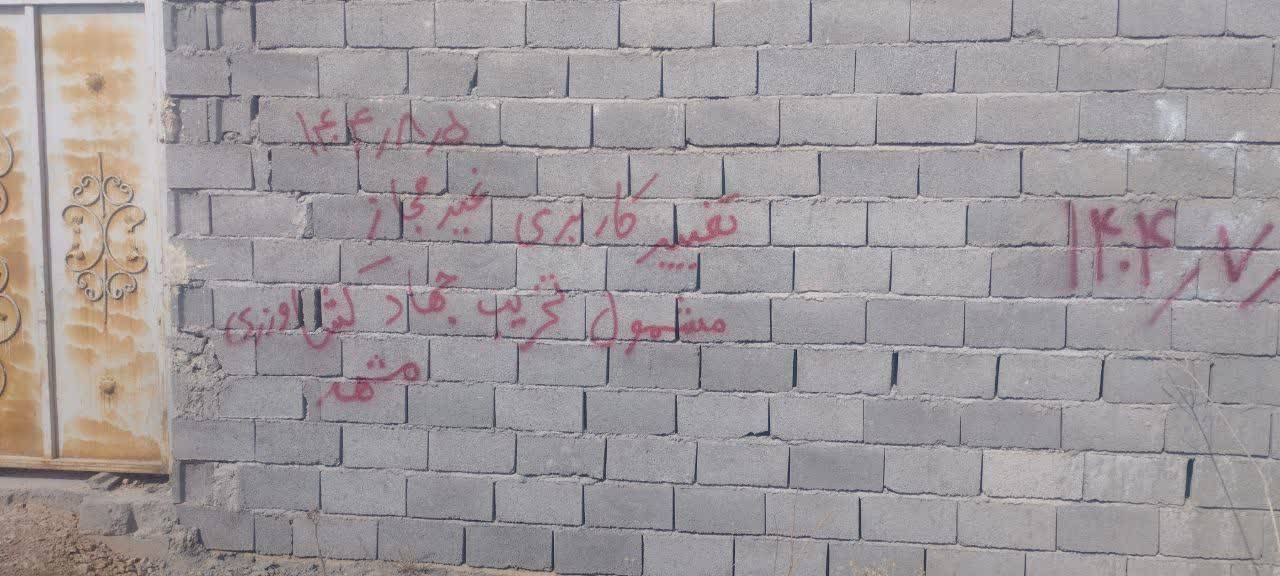 ۱۴۰۴/۸/۵
تغییر کاربری غیر مجاز
مشمول تخریب جهاد کشاورزی
مشهد
۱۴۰۴/۷/